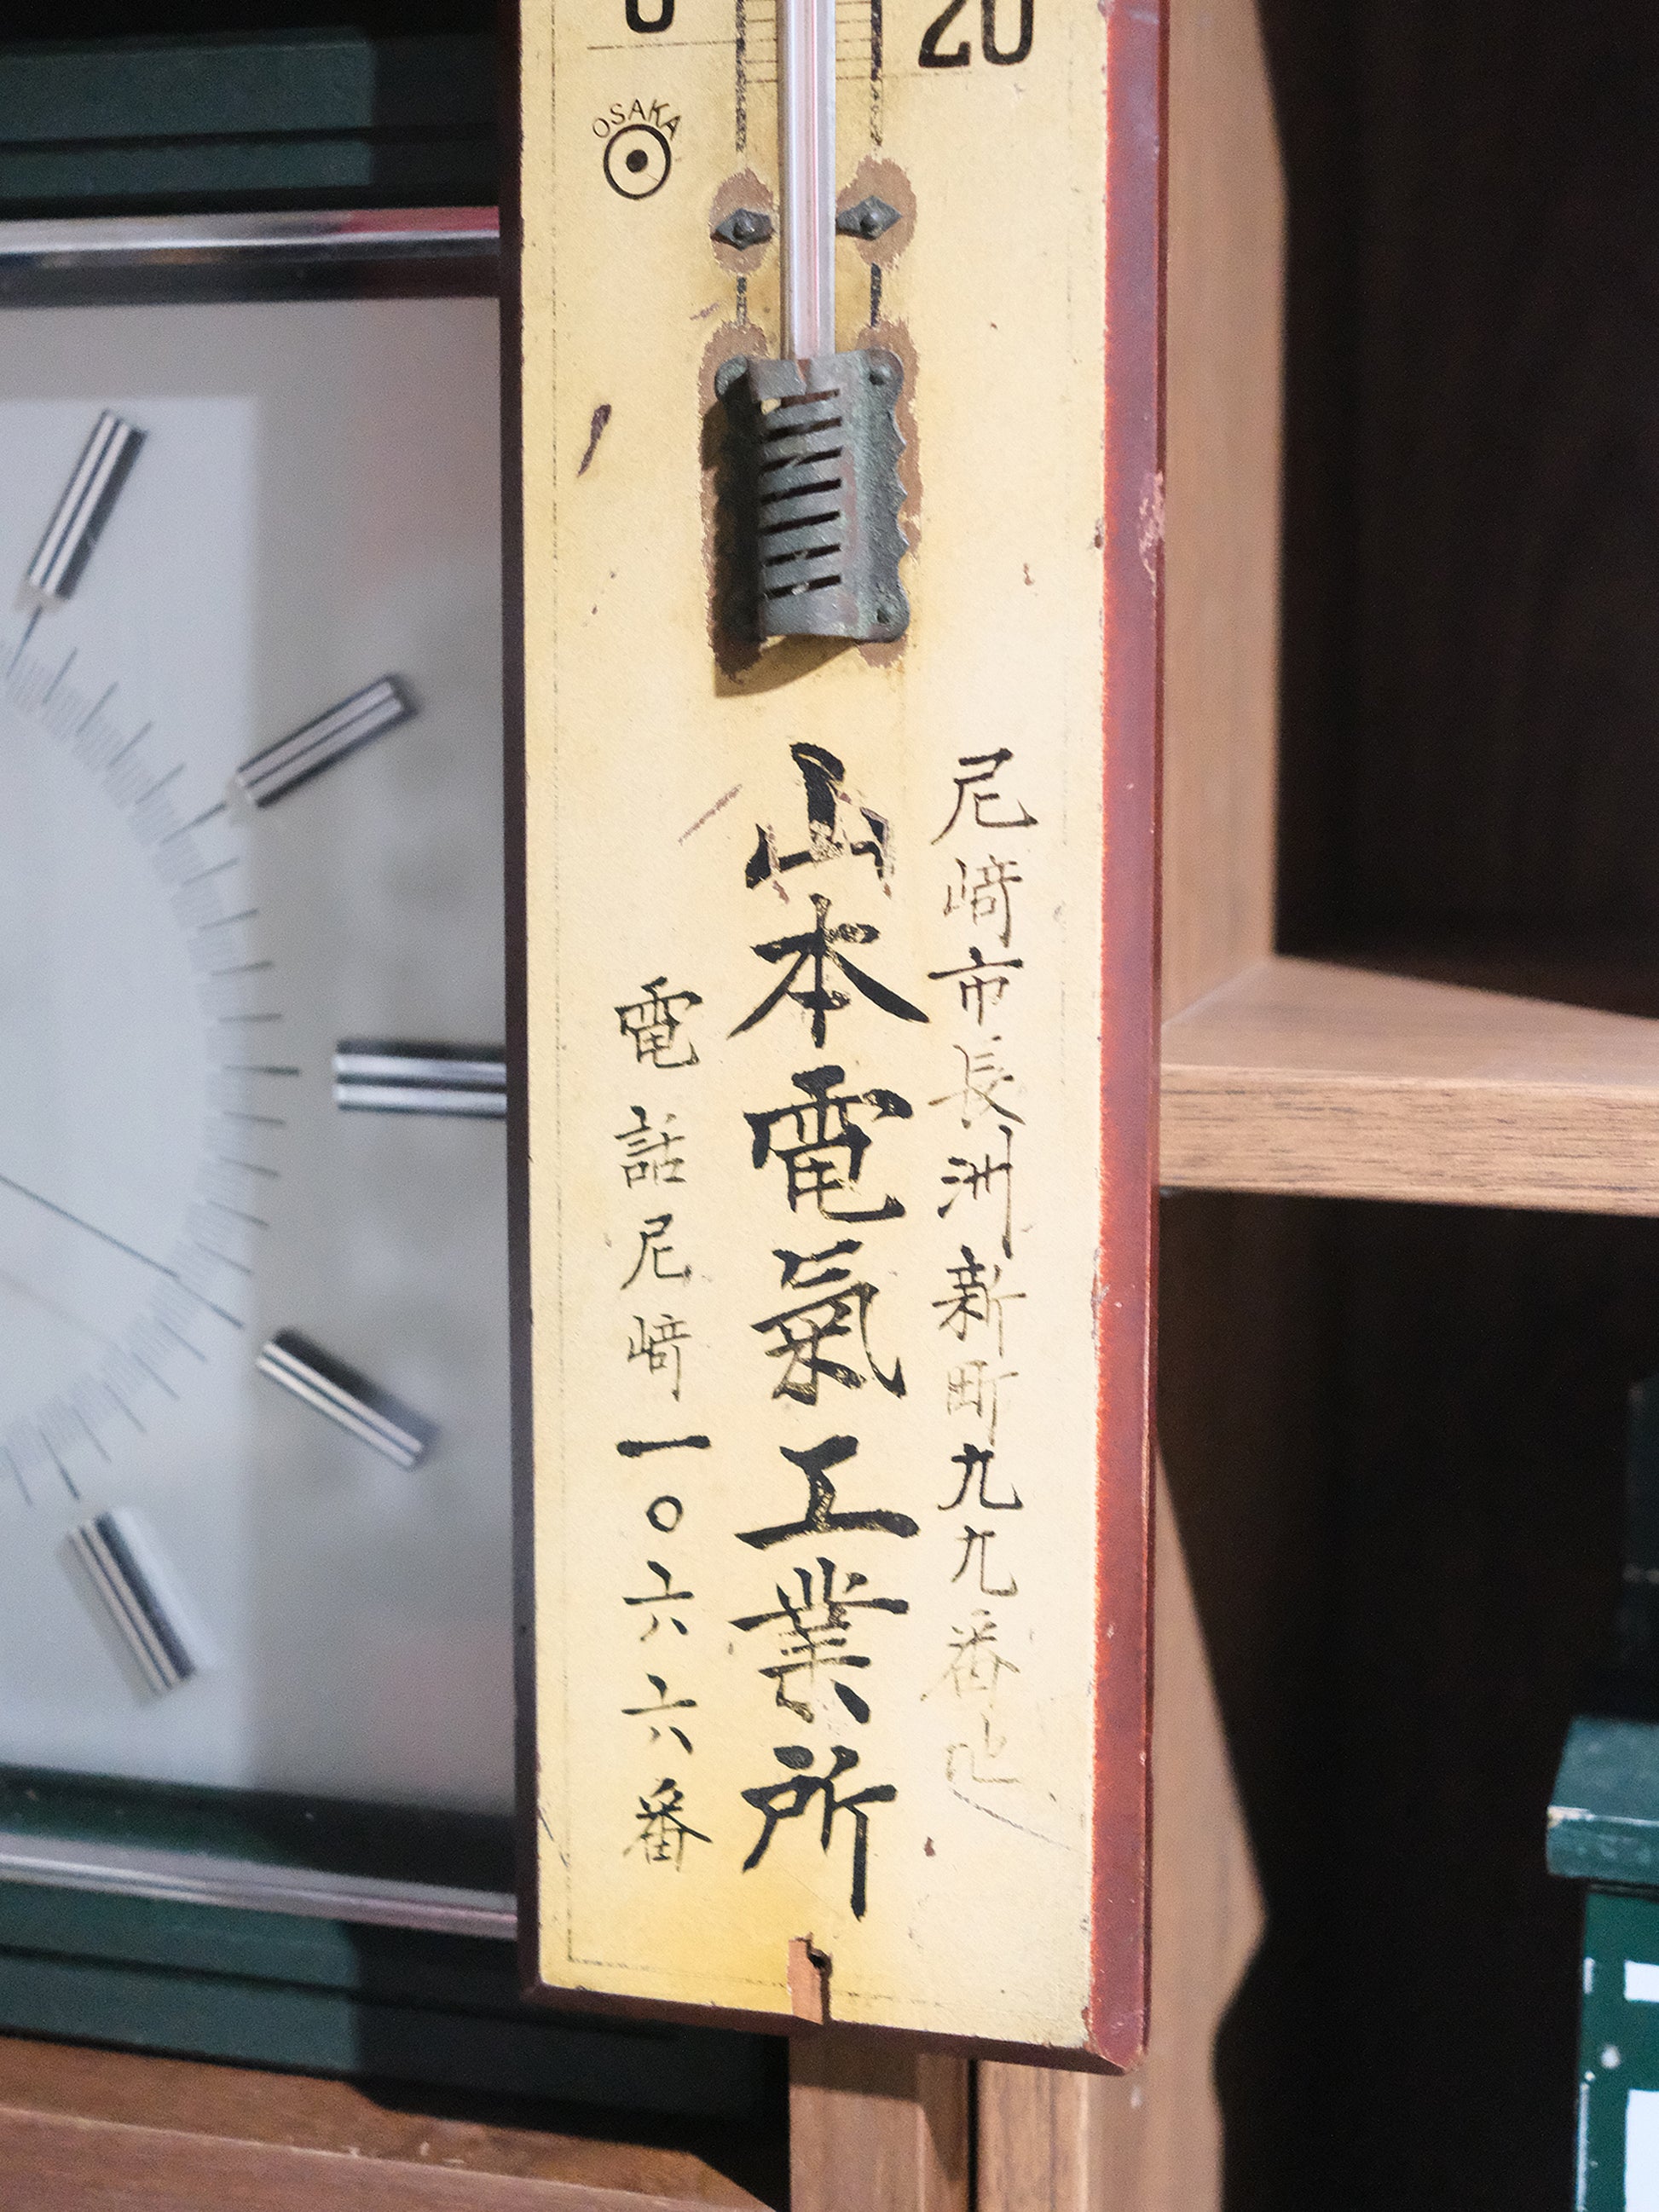 20
OSAKA
尼崎市長洲新町九九番地
山本電氣工業所
電話尼崎一〇六六番